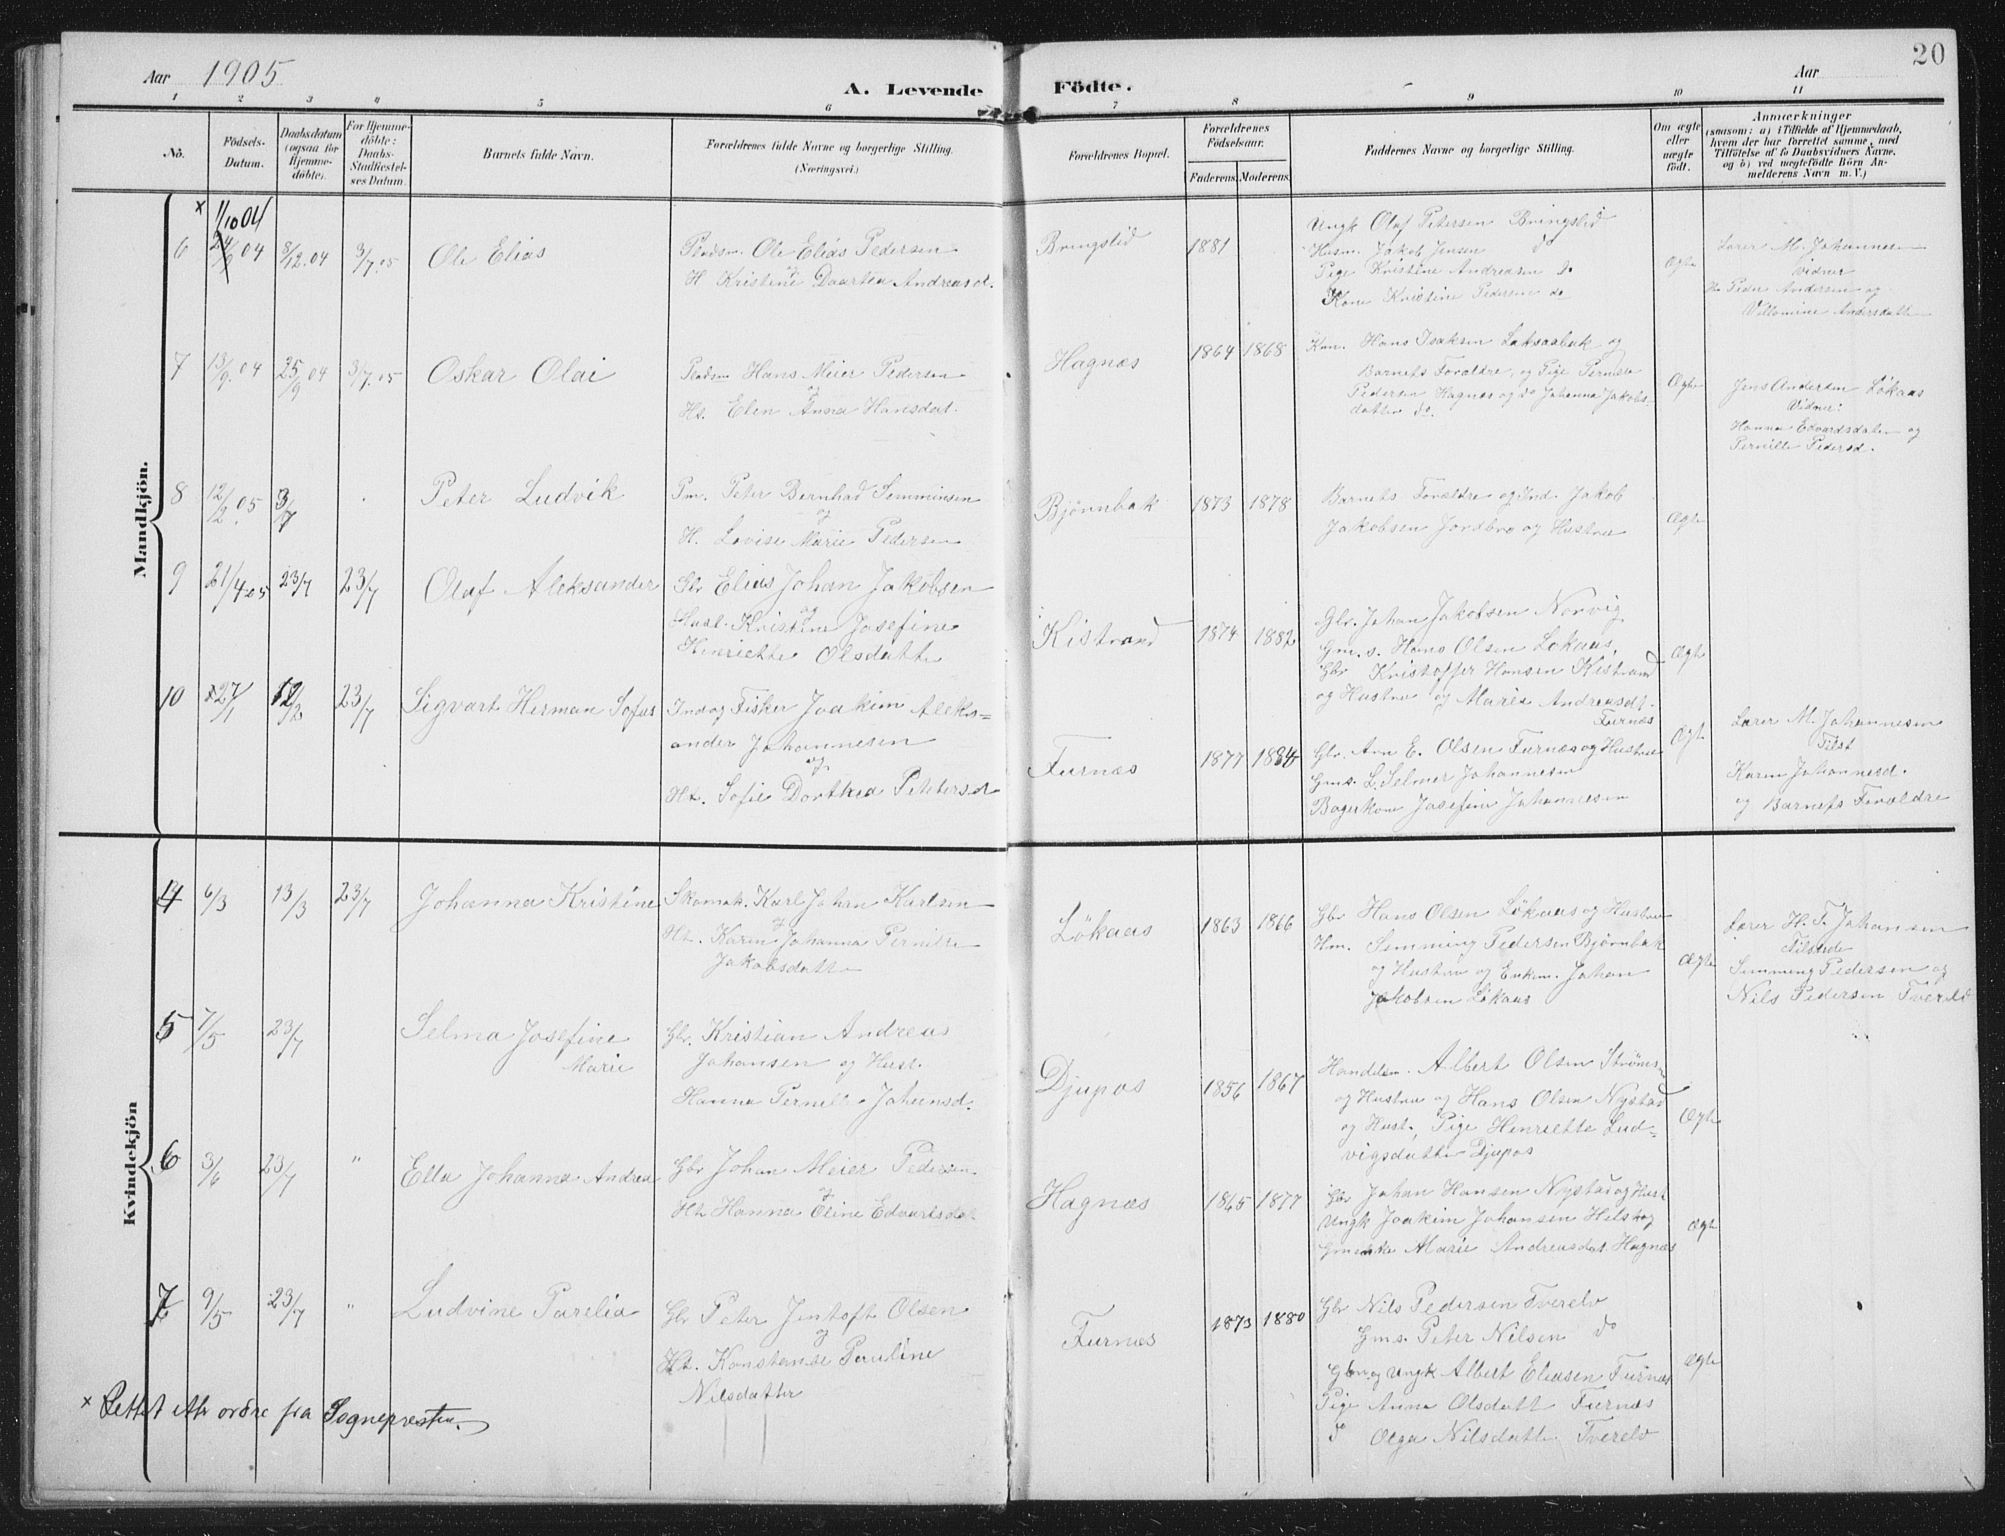 20
Aar 1905
A. Levende Födte.
Aar
1 2 3 4 5 6 7 8 9 10 11
No.
Födsels-Datum.
Daabsdatum (ogsaa for Hjemmedöbte).
For Hjemmedöbte: Daabs-Stadfæstelses Datum.
Barnets fulde Navn.
Forældrenes fulde Navne og borgerlige Stilling.
(Næringsvei.)
Forældrenes Bopæl.
Forældrenes Födselsaar.
Faderens. Moderens.
Faddernes Navne og borgerlige Stilling.
Om ægte eller uægte födt.
Anmærkninger
(saasom: a) i Tilfælde af Hjemmedaab,
hvem der har forrettet samme, med
Tilföielse af to Daabsvidners Navne,
og b) ved uægtefödte Börn Anmelderens Navn m. V.)
Mandkjön.
x 1/10 04
6 24/9 04 8/12.04 3/7.05 Ole Elias
Pladsm. Ole Elias Pedersen
og
H. Kristine Daartea Andreasd.
Bringslid 1881
Ungk Olaf Petersen Bringslid
Husm. Jakob Jensen do
Pige Kristine Andreasen do
Kone Kristine Pedersen do
Ægte
Lærer M. Johannesen
Vidner
Peder Andersen og
Villomine Andersdatter
7 13/9.04 25/9 04 3/7.05 Oskar Olai
Pladsm Hans Meier Pedersen
og
Ht. Elen Anna Hansdat.
Hagnæs 1864 1868
Hans Isaksen Laksaabak og
Barnets Forældre, og Pige Pernille
Pedersen Hagnæs og do Johanna Jakobs-
datter do.
Ægte
Jens Andersen Lökaas
Vidner:
Hanna Edvardsdatter og
Pernille Pedersd.
8 12/2.05 3/7 Peter Ludvik
Pm. Peter Bernhad Semminsen
og
H. Lovise Marie Pedersen
Bjönnbak 1873 1878
Barnets Forældre og Ind. Jakob
Jakobsen Jordbro og Hustru
Ægte
9 21/4.05 23/7 23/7 Olaf Aleksander
Gbr Elias Johan Jakobsen
og
Hust. Kristine Josefine
Henriette Olsdatte
Kistrand 1874 1882
Gbr. Johan Jakobsen Norvig
Gm. s. Hans Olsen Lökaas,
Gbr Kristoffer Hansen Kistrand
og Hustru og Marie Andreasdt.
Furnæs
Ægte
10 27/1 12/2 23/7 Sigvart Herman Sofus
Ind og Fisker Joakim Aleks-
ander Johannesen
og
Ht. Sofie Dorthea Pettersd
Furnæs 1877 1884
Gbr. Arn E. Olsen Furnæs og Hustru
Gms. L. Selmer Johannesen
Bagerkone Josefine Johannesen
Ægte
Lærer M. Johannesen
Tilst
Karen Johannesd.
og Barnets Forældre
Kvindekjön
4 6/3 13/3 23/7 Johanna Kristine
Skomak. Karl Johan Karlsen
og
Ht. Karen Johanna Pernille
Jakobsdatte
Lökaas 1863 1866
Gbr Hans Olsen Lökaas og Hustru
Hm. Semming Pedersen Bjönnbak
og Hustru og Enkm. Johan
Jakobsen Lökaas
Ægte
Lærer H. F. Johansen
Tilstede
Semming Pedersen og
Nils Pedersen Tverelv
5 7/5 23/7 Selma Josefine
Marie
Gbr. Kristian Andreas
Johansen og Hust.
Hanna Pernille Johansd.
Djupos 1856 1867
Handelsm. Albert Olsen Strömsn
og Hustru og Hans Olsen Nystad
og Hust., Pige Henriette Lud-
vigsdatte Djupos
Ægte
6 3/6 23/7 " Ella Johanna Andrea
Gbr Johan Meier Pedersen
og
Ht Hanna Eline Edvartsdat
Hagnæs 1865 1877
Gbr Johan Hansen Nystad og Hust
Ungk Joakim Johansen Hilskog
Marie Andreasdat. Hagnæs
Ægte
7 9/5 23/7 " Ludvine Parelia
Gbr Peter Jentoft Olsen
og
Ht. Konstanse Pauline
Nilsdatter
Furnæs 1873 1880
Gbr Nils Pedersen Tverelv
Gms. Peter Nilsen do
Gbr. og Ungk Albert Eliasen Furnæs
Pige Anna Olsdatt Furnæs
do Olga Nilsdatte Tverelv
Ægte
x Rettet eftr ordre fra Sognepresten.